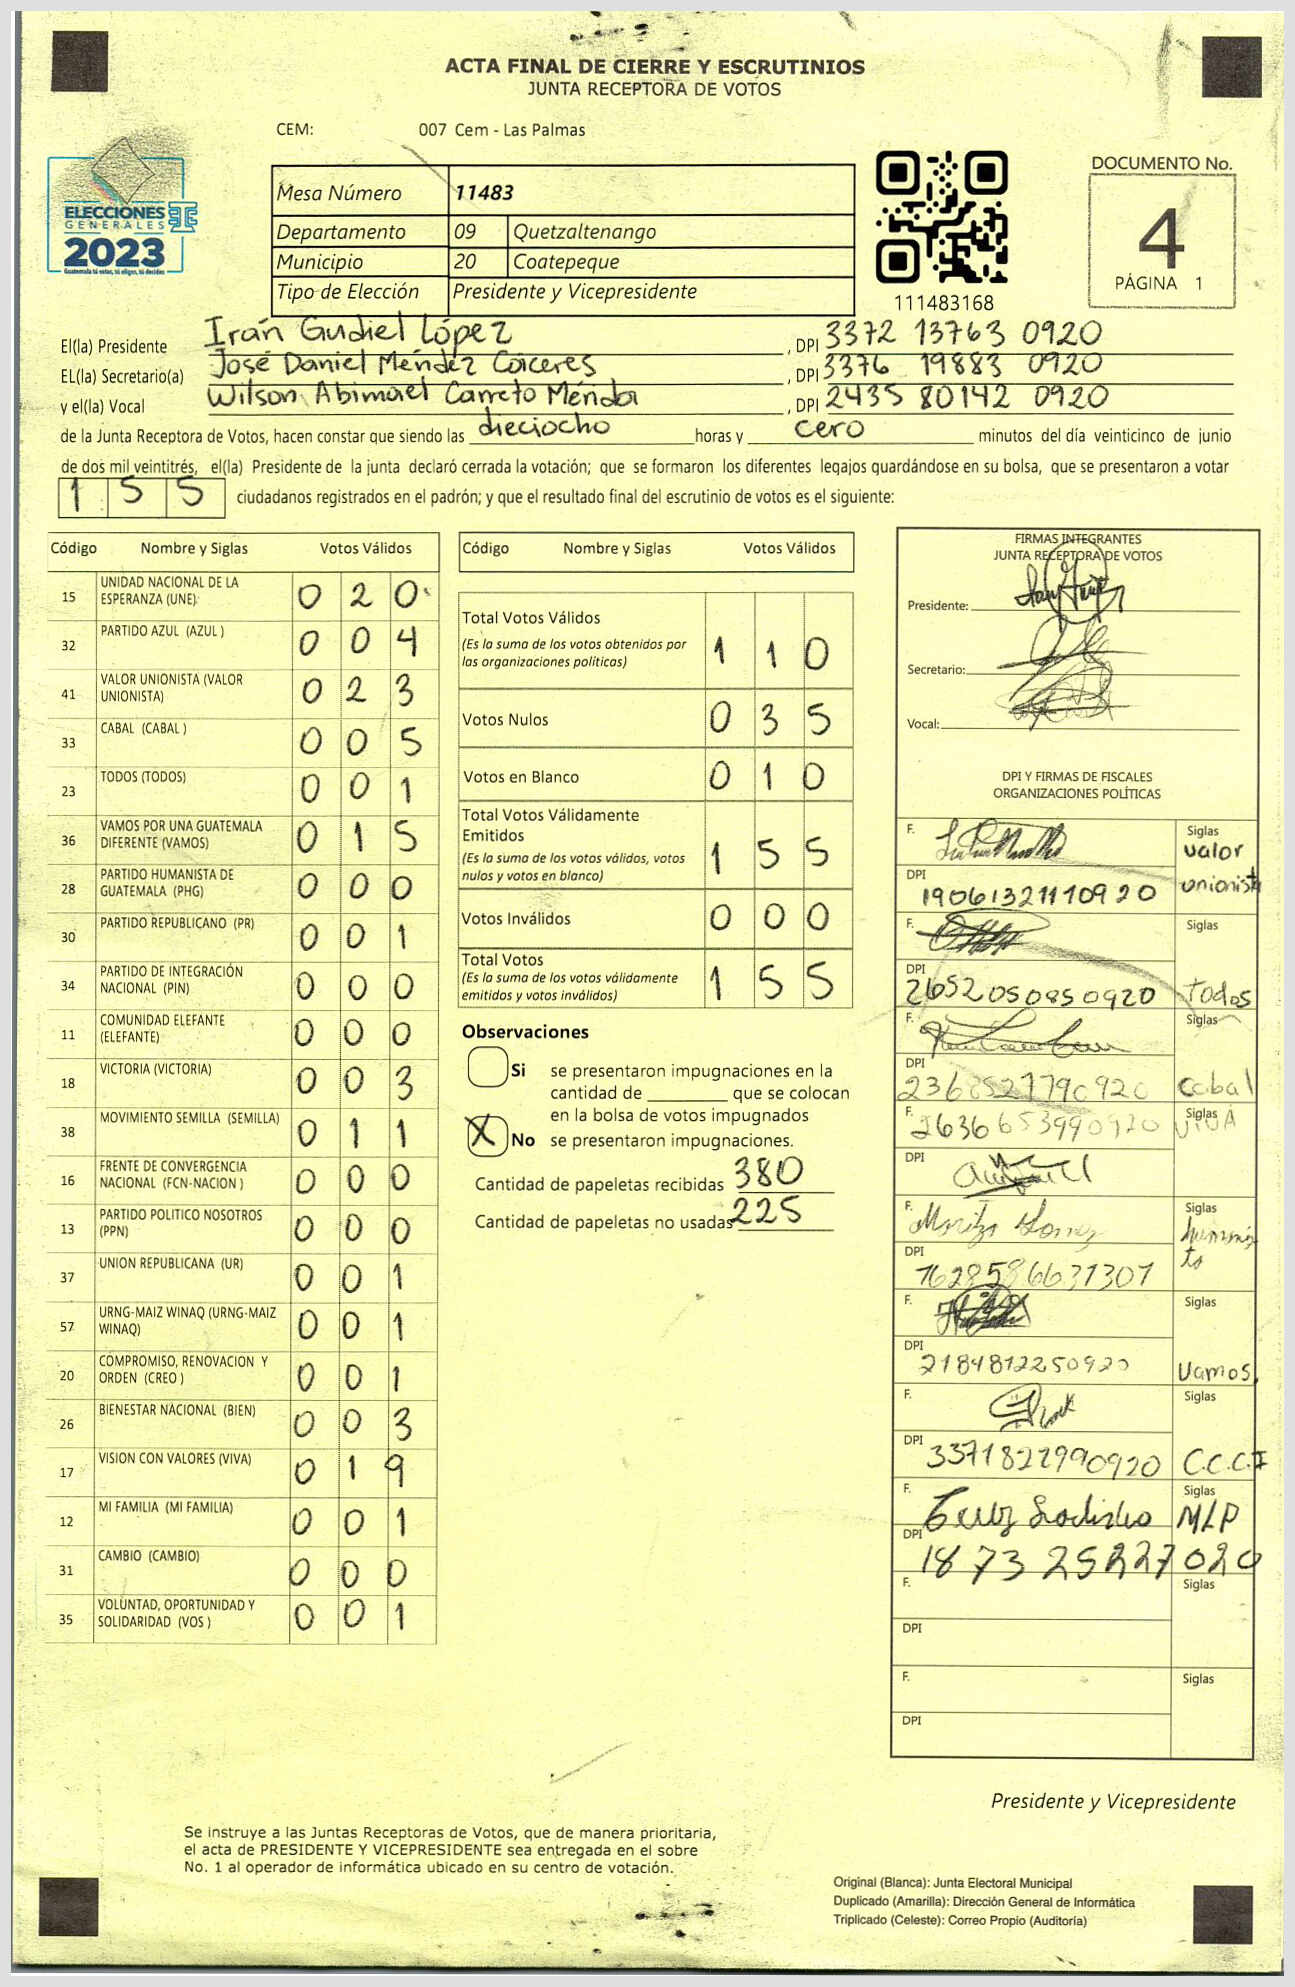 ACTA FINAL DE CIERRE Y ESCRUTINIOS
JUNTA RECEPTORA DE VOTOS
CEM: 007 Cem - Las Palmas
ELECCIONES
GENERALES
2023
Guatemala tú votas, tú eliges, tú decides
Mesa Número 11483
Departamento 09 Quetzaltenango
Municipio 20 Coatepeque
Tipo de Elección Presidente y Vicepresidente
111483168
DOCUMENTO No.
4
PÁGINA 1
El(la) Presidente Irán Gudiel López, DPI 3372 13763 0920
EL(la) Secretario(a) José Daniel Méndez Cáceres, DPI 3376 19883 0920
y el(la) Vocal Wilson Abimael Carreto Mérida, DPI 2435 80142 0920
de la Junta Receptora de Votos, hacen constar que siendo las dieciocho horas y cero minutos del día veinticinco de junio
de dos mil veintitrés, el(la) Presidente de la junta declaró cerrada la votación; que se formaron los diferentes legajos guardándose en su bolsa, que se presentaron a votar
155 ciudadanos registrados en el padrón; y que el resultado final del escrutinio de votos es el siguiente:
Código Nombre y Siglas Votos Válidos
15 UNIDAD NACIONAL DE LA ESPERANZA (UNE) 020
32 PARTIDO AZUL (AZUL ) 004
41 VALOR UNIONISTA (VALOR UNIONISTA) 023
33 CABAL (CABAL ) 005
23 TODOS (TODOS) 001
36 VAMOS POR UNA GUATEMALA DIFERENTE (VAMOS) 015
28 PARTIDO HUMANISTA DE GUATEMALA (PHG) 000
30 PARTIDO REPUBLICANO (PR) 001
34 PARTIDO DE INTEGRACIÓN NACIONAL (PIN) 000
11 COMUNIDAD ELEFANTE (ELEFANTE) 000
18 VICTORIA (VICTORIA) 003
38 MOVIMIENTO SEMILLA (SEMILLA) 011
16 FRENTE DE CONVERGENCIA NACIONAL (FCN-NACION ) 000
13 PARTIDO POLITICO NOSOTROS (PPN) 000
37 UNION REPUBLICANA (UR) 001
57 URNG-MAIZ WINAQ (URNG-MAIZ WINAQ) 001
20 COMPROMISO, RENOVACION Y ORDEN (CREO ) 001
26 BIENESTAR NACIONAL (BIEN) 003
17 VISION CON VALORES (VIVA) 019
12 MI FAMILIA (MI FAMILIA) 001
31 CAMBIO (CAMBIO) 000
35 VOLUNTAD, OPORTUNIDAD Y SOLIDARIDAD (VOS ) 001
Código Nombre y Siglas Votos Válidos
Total Votos Válidos 110
(Es la suma de los votos obtenidos por
las organizaciones políticas)
Votos Nulos 035
Votos en Blanco 010
Total Votos Válidamente
Emitidos 155
(Es la suma de los votos válidos, votos
nulos y votos en blanco)
Votos Inválidos 000
Total Votos 155
(Es la suma de los votos válidamente
emitidos y votos inválidos)
Observaciones
Si se presentaron impugnaciones en la
cantidad de ________ que se colocan
en la bolsa de votos impugnados
X No se presentaron impugnaciones.
Cantidad de papeletas recibidas 380
Cantidad de papeletas no usadas 225
FIRMAS INTEGRANTES
JUNTA RECEPTORA DE VOTOS
Presidente:
Secretario:
Vocal:
DPI Y FIRMAS DE FISCALES
ORGANIZACIONES POLÍTICAS
F. Siglas valor unionista
DPI 1906132111 0920
F. Siglas Todos
DPI 2652050850920
F. Siglas Cabal
DPI 2368527790920
F. 2636653990920 Siglas VIVA
DPI
F. Siglas humanista
DPI 1628586631307
F. Siglas Vamos
DPI 2184812250920
F. Siglas C.C.C.I
DPI 3371822990920
F. Siglas MLP
DPI 1873 25227020
F. Siglas
DPI
F. Siglas
DPI
Presidente y Vicepresidente
Se instruye a las Juntas Receptoras de Votos, que de manera prioritaria,
el acta de PRESIDENTE Y VICEPRESIDENTE sea entregada en el sobre
No. 1 al operador de informática ubicado en su centro de votación.
Original (Blanca): Junta Electoral Municipal
Duplicado (Amarilla): Dirección General de Informática
Triplicado (Celeste): Correo Propio (Auditoría)